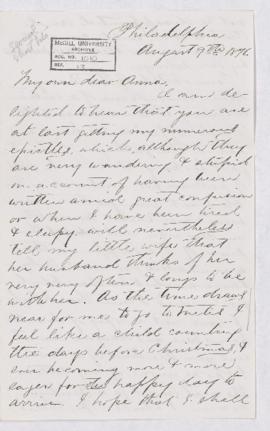 Philadelphia
August 9th 1876
McGILL UNIVERSITY
ARCHIVES
ACC. NO. 1010
REF.
My own dear Anna,
I am de-
lighted to hear that you are
at last getting my numerous
epistles, which, although they
are very wandering & stupid
on account of having been
written amid great confusion
or when I have been tired
& sleepy will nevertheless
tell my little wife that
her husband thinks of her
very very often & longs to be
with her. As the time draws
near for me to go to Metis I
feel like a child counting
the days before Christmas, &
am becoming more & more
eager for the happy day to
arrive. I hope that I shall